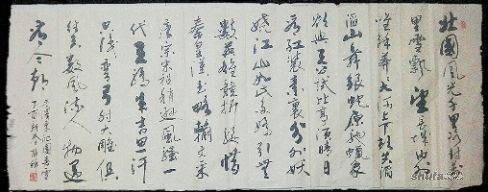 北國風光千里冰封萬
里雪飄望長城內外
惟餘莽莽大河上下頓失滔
滔山舞銀蛇原馳蠟象
欲與天公試比高須晴日
看紅裝素裹分外妖
嬈江山如此多嬌引無
數英雄競折腰惜
秦皇漢武略輸文采
唐宗宋祖稍遜風騷一
代天驕成吉思汗
只識彎弓射大雕俱
往矣數風流人物還
看今朝